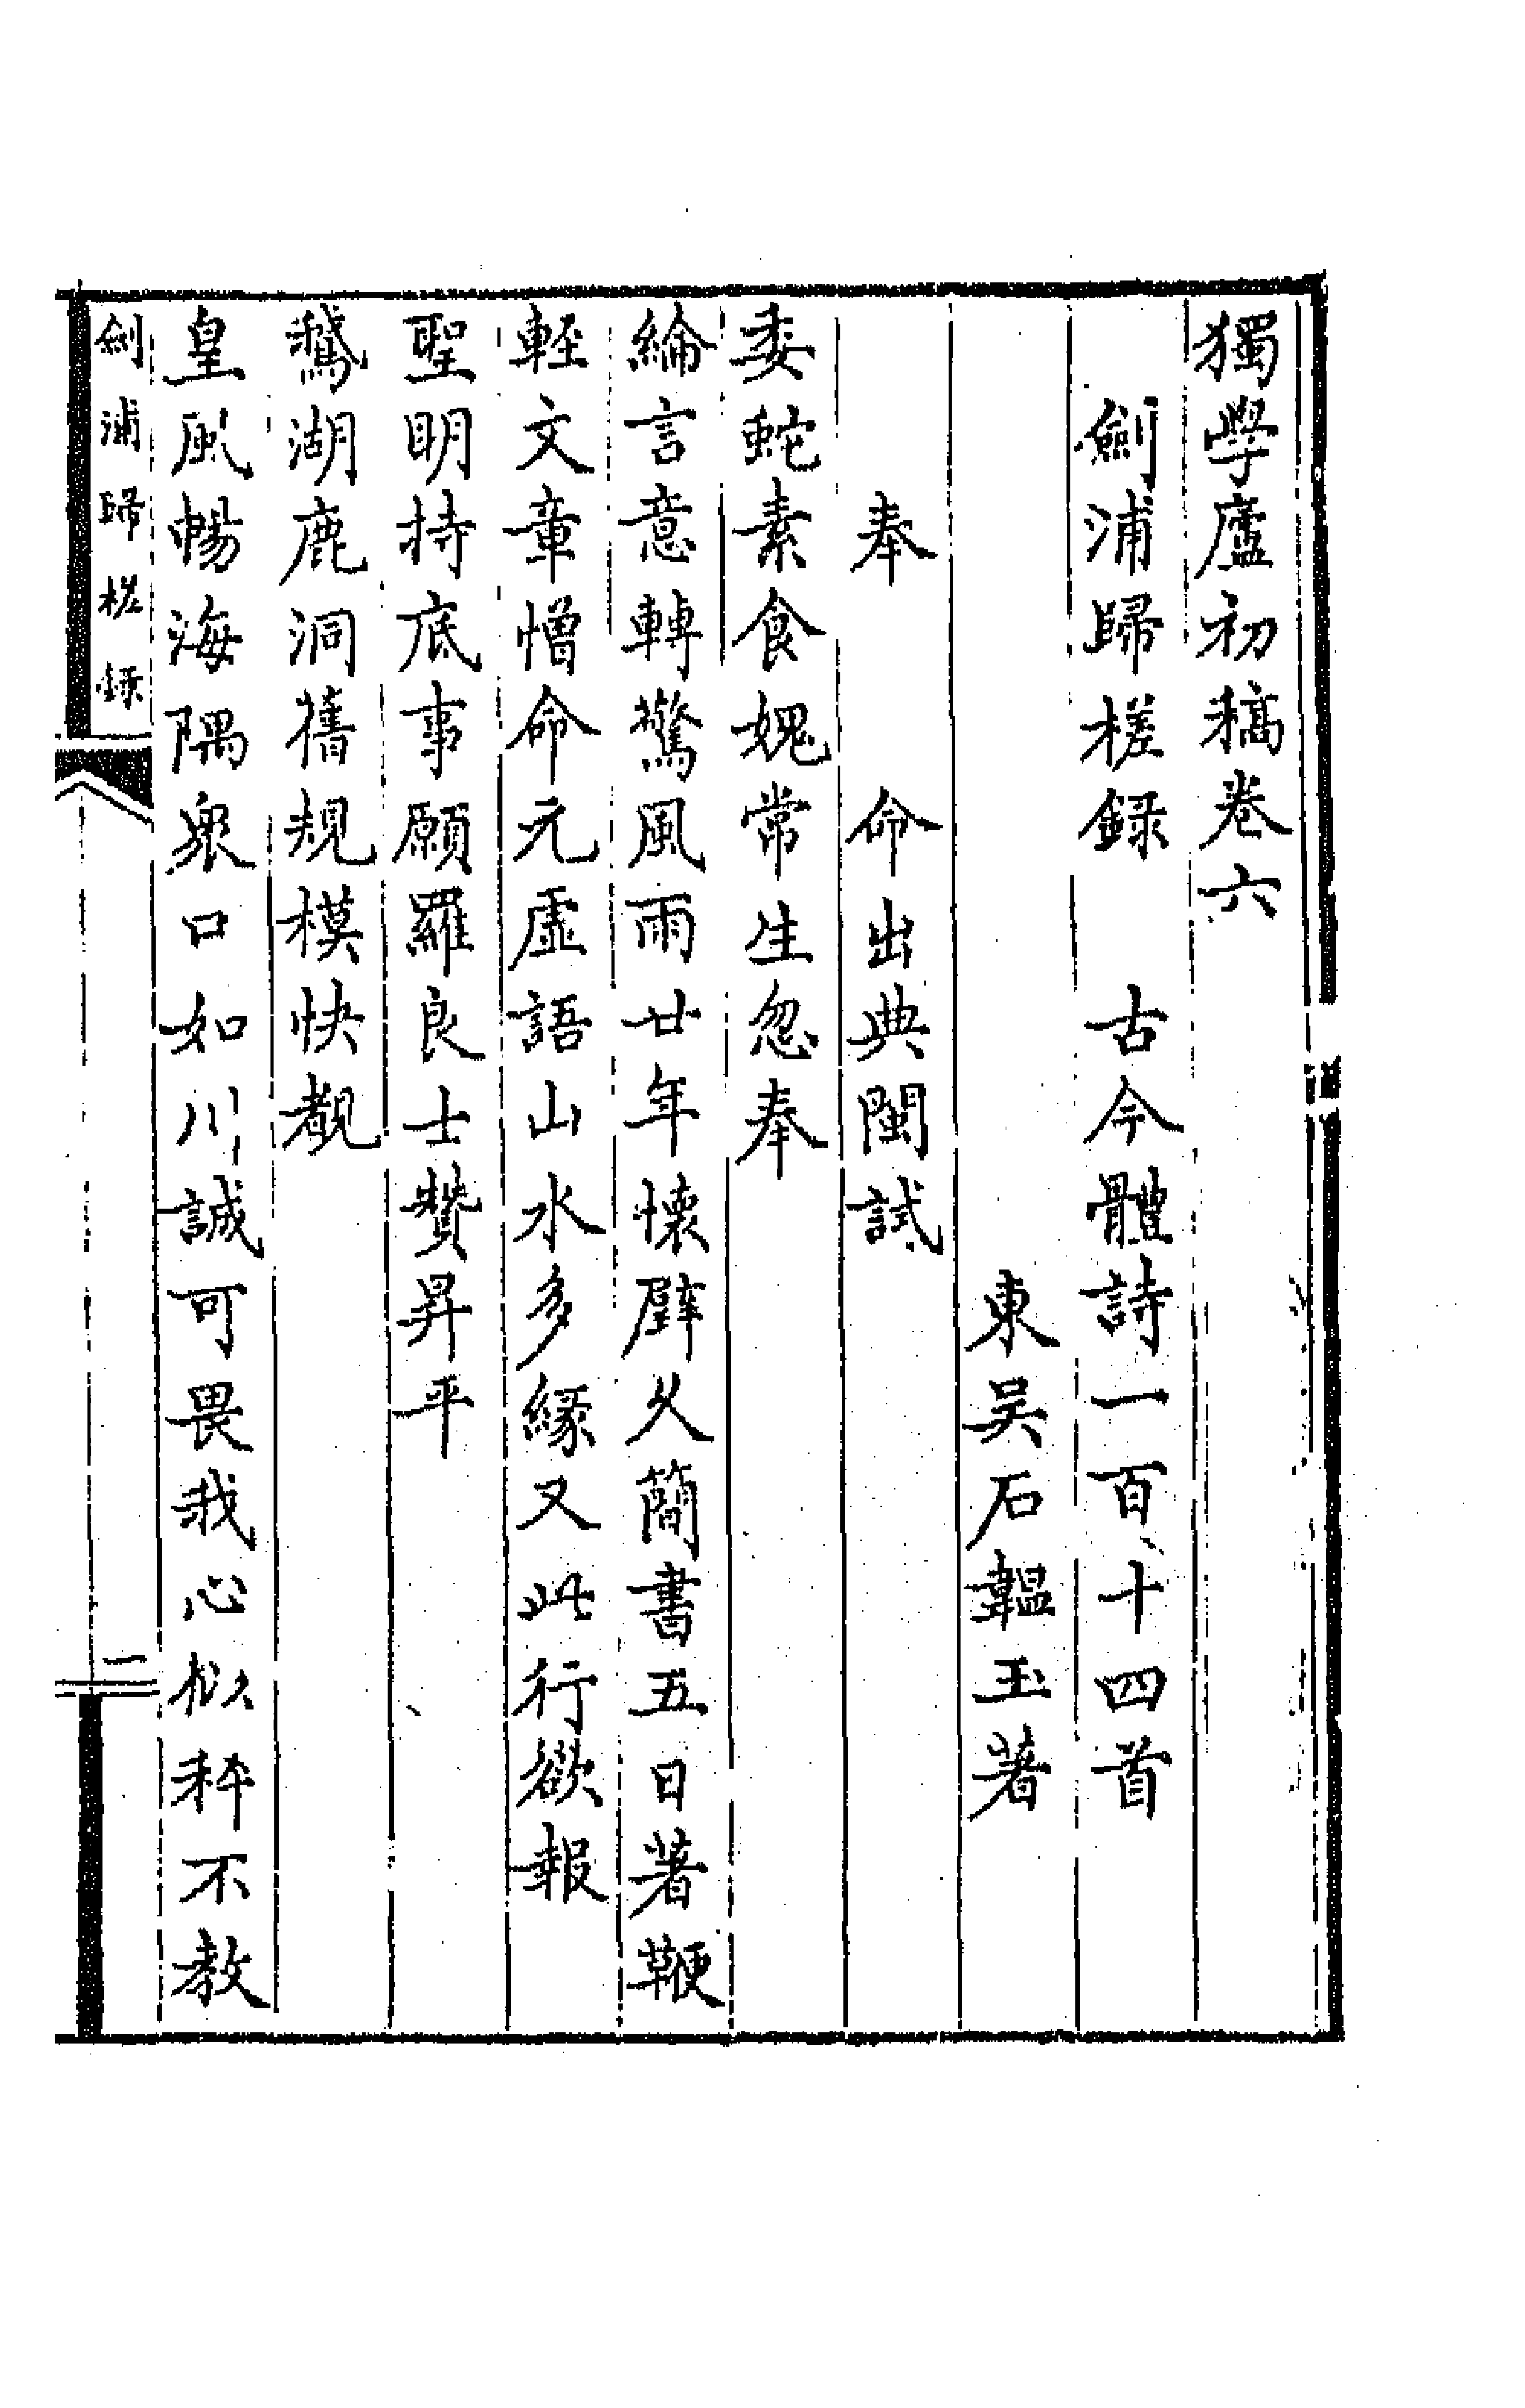 獨學廬初稿卷六
劍浦歸槎録　古今體詩一百十四首
東吳石韞玉著
奉　命出典閩試
委蛇素食媿常生忽奉
綸言意轉驚風雨廿年懷璧久簡書五日著鞭
輕文章憎命元虛語山水多緣又此行欲報
聖明持底事願羅良士贊昇平
鵞湖鹿洞舊規模快覩
皇風暢海隅衆口如川誠可畏我心似秤不教
劍浦歸槎録
一